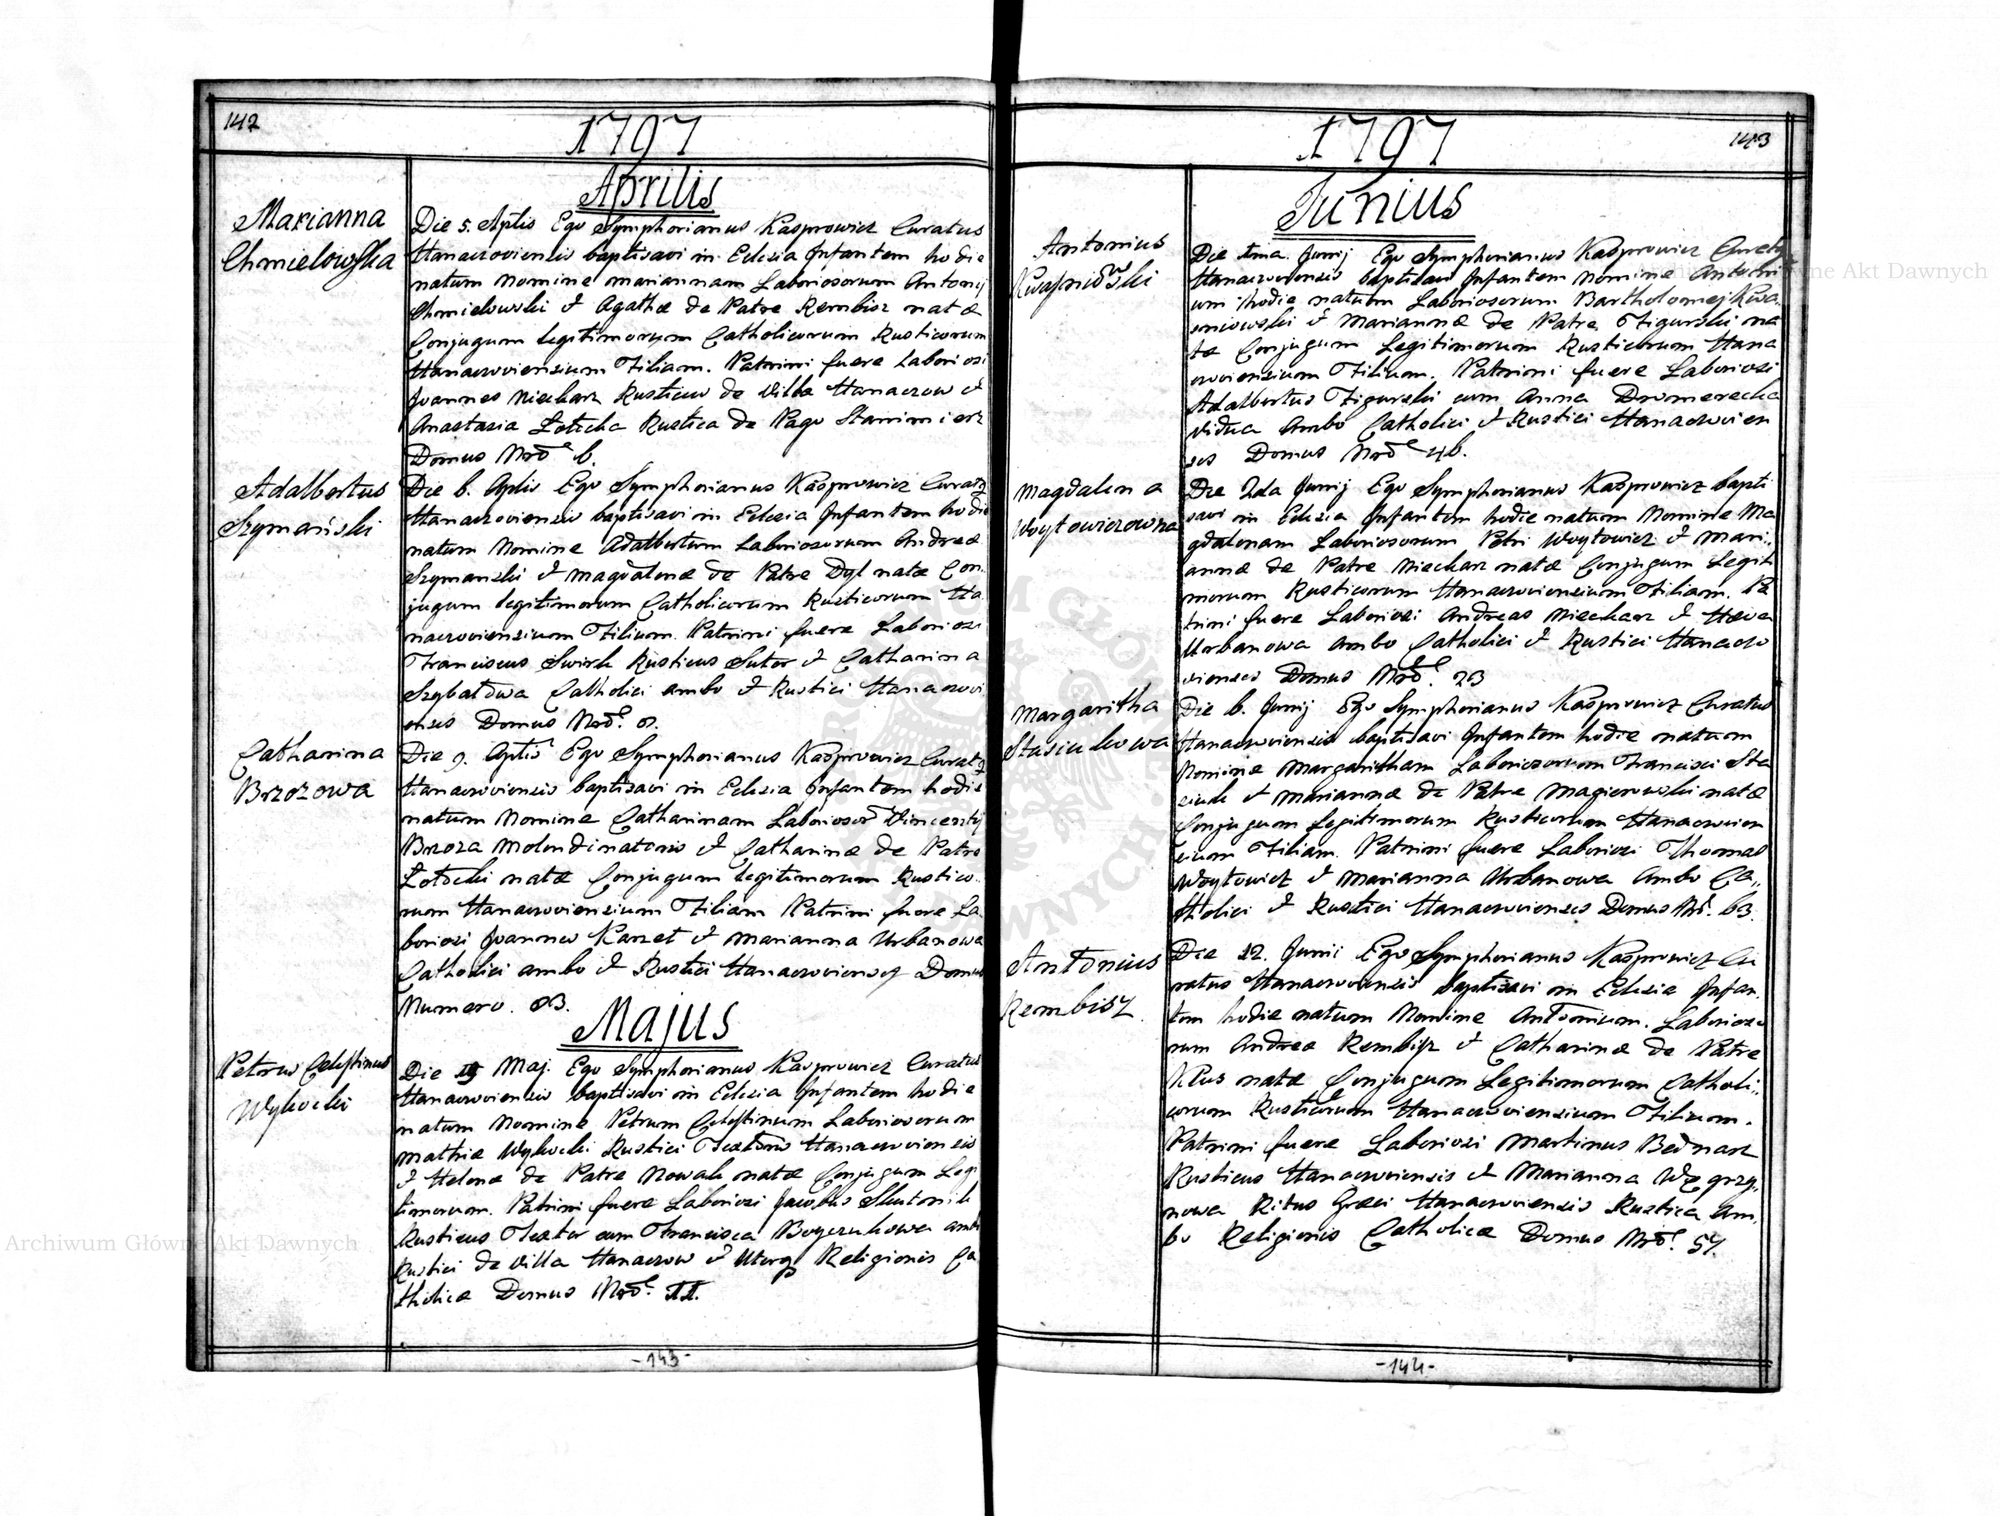 142
1797
Aprilis
Marianna
Chmielowska
Die 5. Aplis Ego Symphorianus Kasprowicz Curatus
Hanaczoviensis baptisavi in Eclesia Infantem hodie
natum Nomine Mariannam Laboriosorum Antonij
Chmielowski & Agathæ de Patre Rembisz natæ
Conjugum legitimorum Catholicorum Rusticorum
Hanaczoviensium Filiam. Patrini fuere Laboriosi
Joannes Niecharz Rusticus de Villa Hanaczow &
Anastasia Łotecka Rustica de Pago Stanimierz
Domus Nrō 6.
Adalbertus
Szymański
Die 6. Aplis Ego Symphorianus Kasprowicz Curatq
Hanaczoviensis baptisavi in Eclesia Infantem hodie
natum Nomine Adalbertum Laboriosorum Andreæ
Szymanski & Magdalenæ de Patre Dyl natæ Con-
jugum legitimorum Catholicorum Rusticorum Ha
naczoviensium Filium. Patrini fuere Laboriosi
Franciscus Swirk Rusticus Sutor & Catharina
Szybałowa Catholici ambo & Rustici Hanaczovi
enses Domus Nrō 8.
Catharina
Brzozowa
Die 9. Aplis Ego Symphorianus Kasprowicz Curatq
Hanaczoviensis baptisavi in Eclesia Infantem hodie
natum Nomine Catharinam Laboriosor Vincentij
Brzoza Molendinatoris & Catharinæ de Patre
Łotocki natæ Conjugum legitimorum Rustico-
rum Hanaczoviensium Filiam Patrini fuere La-
boriosi Joannes Karzet & Marianna Urbanowa
Catholici ambo & Rustici Hanaczovienseq Domus
Numero. 83.
Majus
Petrus Celestinus
Wysocki
Die 19 Maj. Ego Symphorianus Kasprowicz Curatus
Hanaczoviensis baptisavi in Eclesia Infantem hodie
natum Nomine Petrum Celestinum Laboriosorum
Mathiæ Wysocki Rustici Textoris Hanaczoviensis
& Helenæ de Patre Nowak natæ Conjugum Legi
timorum. Patrini fuere Laboriosi Jacobus
Rusticus Textor cum Francisca ambo
Rustici de Villa Hanaczow & Uterq Religionis Ca
tholicæ Domus Nrō. 11.
-143-
1797
143
Junius
Antonius
Kwasniowski
Die 1ma. Junij Ego Symphorianus Kasprowicz Curatq
Hanaczoviensis baptisavi Infantem Nomine Antoni
um hodie natum Laboriosorum Bartholomej Kwa-
sniowski & Mariannæ de Patre Figurski na
tæ Conjugum Legitimorum Rusticorum Hana
czoviensium Filium. Patrini fuere Laboriosi
Adalbertus Figurski cum Anna Dromerecka
Vidua Ambo Catholici & Rustici Hanaczovien
ses Domus Nrō 46.
Magdalena
Woytowiczowna
Die 2da Junij Ego Symphorianus Kasprowicz bapti
savi in Eclesia Infantem hodie natum Nomine Ma
gdalenam Laboriosorum Petri Woytowicz & Mari-
annæ de Patre Niecharz natæ Conjugum Legiti
morum Rusticorum Hanaczoviensium Filiam. Pa
trini fuere Laboriosi Andreas Niecharz & Hæva
Urbanowa ambo Catholici & Rustici Hanaczo
vienses Domus Nrō. 23
Margaritha
Stasiukowa
Die 6. Junij Ego Symphorianus Kasprowicz Curatus
Hanaczoviensis baptisavi Infantem hodie natum
Nomine Margaritham Laboriosorum Francisci Sta
siuk & Mariannæ de Patre Magierowski natæ
Conjugum Legitimorum Rusticorum Hanaczovien
sium Filiam. Patrini fuere Laboriosi Thomas
Woytowicz & Marianna Urbanowa Ambo Ca-
tholici & Rustici Hanaczovienses Domus Nr. 63.
Antonius
Rembisz
Die 12. Junii Ego Symphorianus Kasprowicz Cu
ratus Hanaczoviensis baptisavi in Eclesia Infan-
tem hodie natum Nomine Antonium. Laborioso
rum Andreæ Rembisz & Catharinæ de Patre
Kłus natæ Conjugum Legitimorum Catholi-
corum Rusticorum Hanaczoviensium Filium.
Patrini fuere Laboriosi Martinus Bednarz
Rusticus Hanaczoviensis & Marianna Węgrzy-
nowa Ritus Græci Hanaczoviensis Rustica Am-
bo Religionis Catholicæ Domus Nrō. 57.
-144-
Archiwum Główne Akt Dawnych
ARCHIWUM GŁÓWNE AKT DAWNYCH